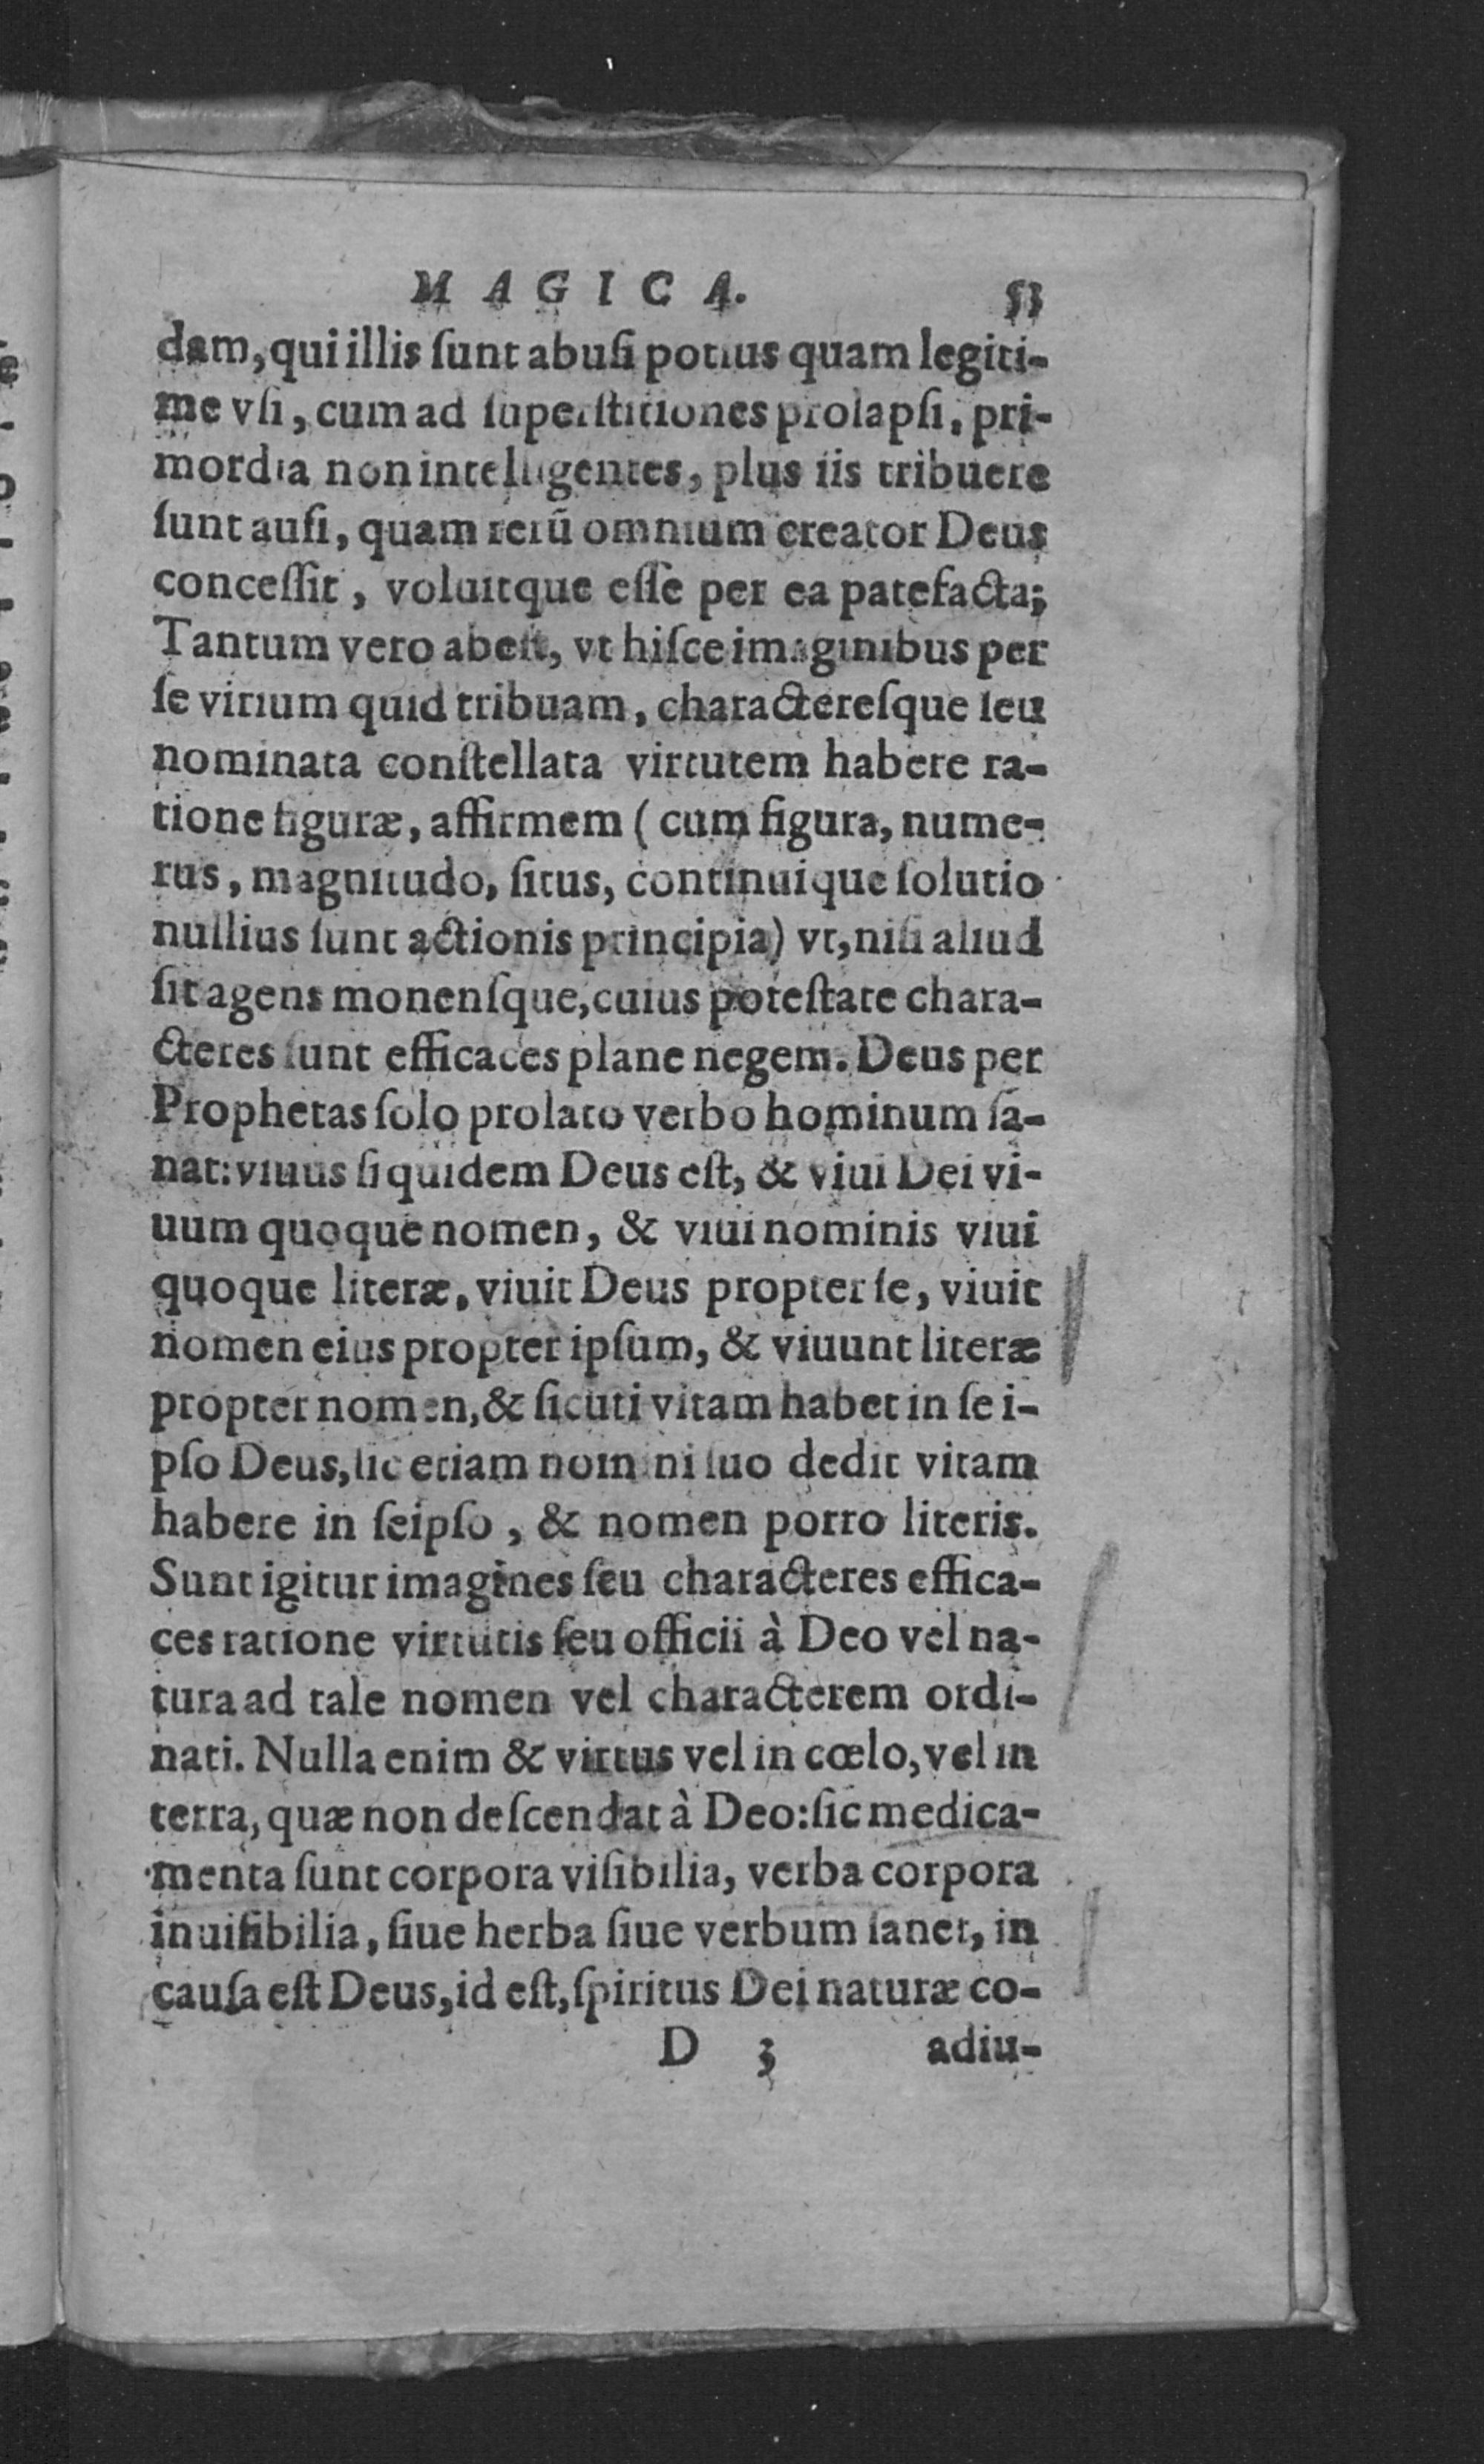 MAGICA. 53
dam, qui illis ſunt abuſi potius quam legiti-
me vſi, cum ad ſuperſtitiones prolapſi, pri-
mordia non intelligentes, plus iis tribuere
ſunt auſi, quam rerū omnium creator Deus
conceſſit, voluitque eſſe per ea patefacta;
Tantum vero abeſt, vt hiſce imaginibus per
ſe virium quid tribuam, charactereſque ſeu
nominata conſtellata virtutem habere ra-
tione figuræ, affirmem (cum figura, nume-
rus, magnitudo, ſitus, continuique ſolutio
nullius ſunt actionis principia) vt, niſi aliud
ſit agens monenſque, cuius poteſtate chara-
cteres ſunt efficaces plane negem. Deus per
Prophetas ſolo prolato verbo hominum ſa-
nat: viuus ſiquidem Deus eſt, & viui Dei vi-
uum quoque nomen, & viui nominis viui
quoque literæ, viuit Deus propter ſe, viuit
nomen eius propter ipſum, & viuunt literæ
propter nomen, & ſicuti vitam habet in ſe i-
pſo Deus, ſic etiam nomini ſuo dedit vitam
habere in ſeipſo, & nomen porro literis.
Sunt igitur imagines ſeu characteres effica-
ces ratione virtutis ſeu officii à Deo vel na-
tura ad tale nomen vel characterem ordi-
nati. Nulla enim & virtus vel in cœlo, vel in
terra, quæ non deſcendat à Deo: ſic medica-
menta ſunt corpora viſibilia, verba corpora
inuiſibilia, ſiue herba ſiue verbum ſanet, in
cauſa eſt Deus, id eſt, ſpiritus Dei naturæ co-
D 3 adiu-